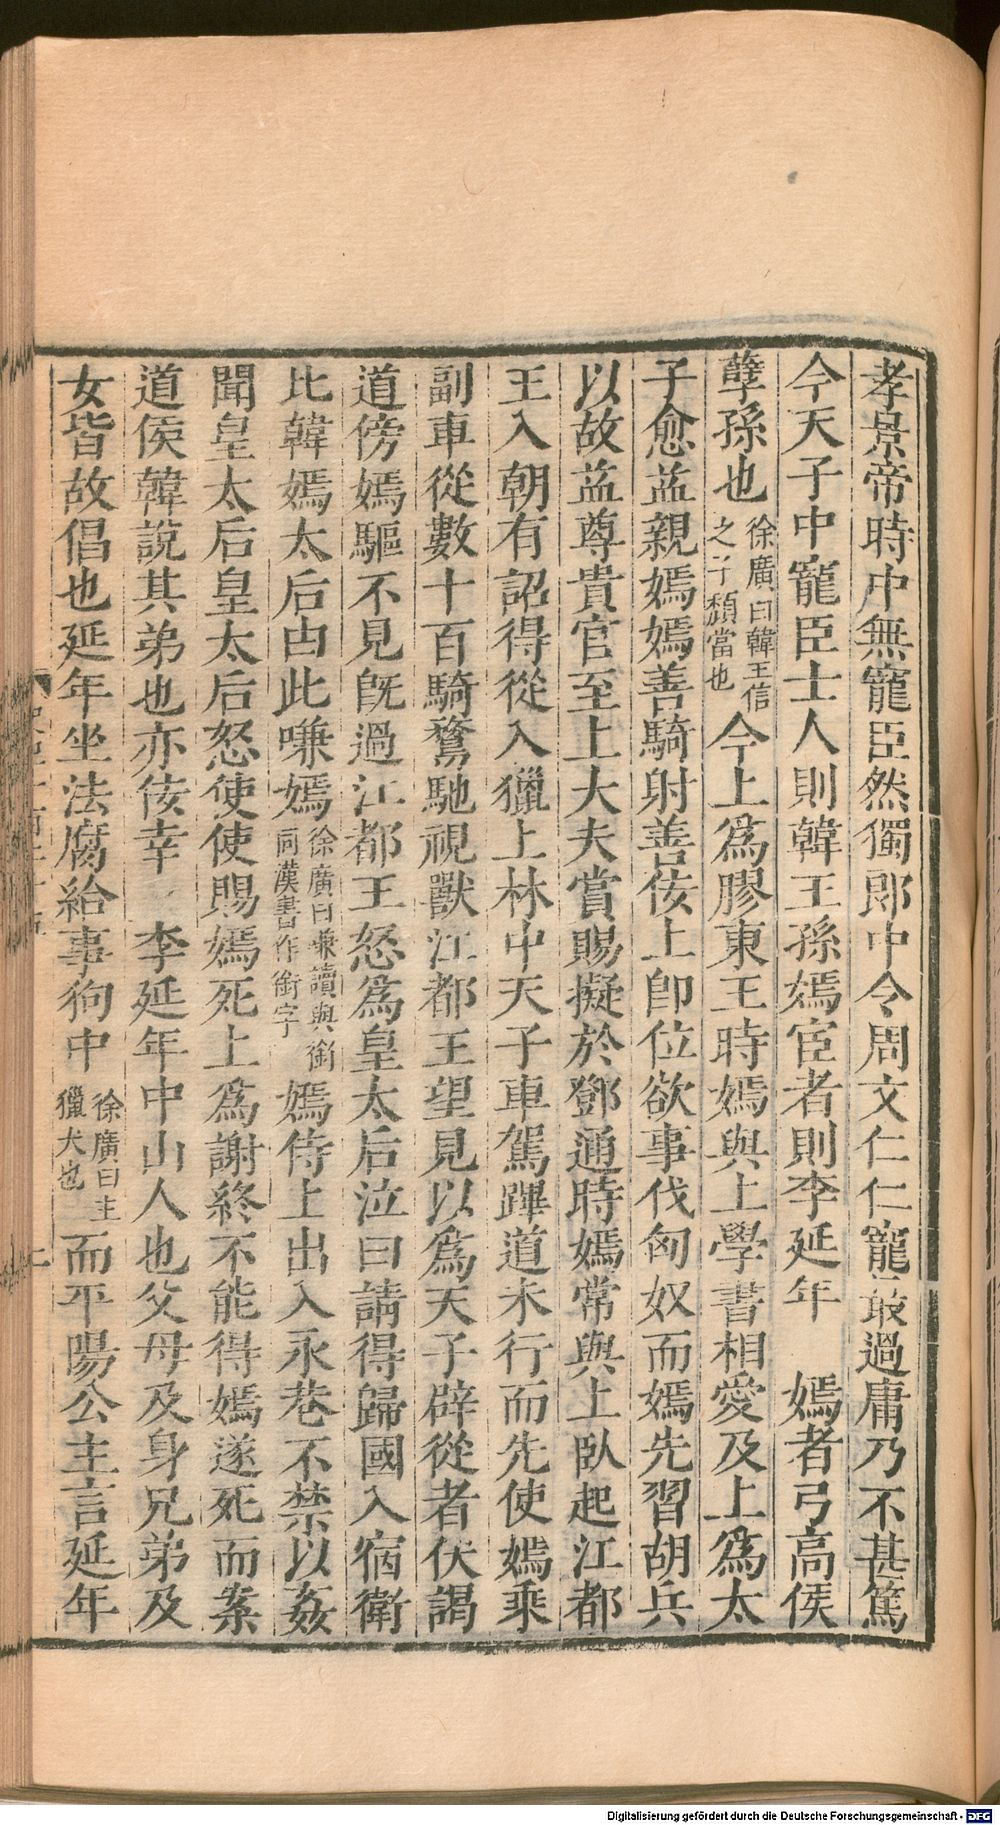 孝景帝時中無寵臣然獨郎中令周文仁仁寵最過庸乃不甚篤
今天子中寵臣士人則韓王孫嫣宦者則李延年　嫣者弓高侯
孽孫也徐廣曰韓王信之子頹當也今上爲膠東王時嫣與上學書相愛及上爲太
子愈益親嫣嫣善騎射善佞上卽位欲事伐匈奴而嫣先習胡兵
以故益尊貴官至上大夫賞賜擬於鄧通時嫣常與上臥起江都
王入朝有詔得從入獵上林中天子車駕蹕道未行而先使嫣乘
副車從數十百騎騖馳視獸江都王望見以爲天子辟從者伏謁
道傍嫣驅不見旣過江都王怒爲皇太后泣曰請得歸國入宿衛
比韓嫣太后由此嗛嫣徐廣曰嗛讀與銜同漢書作銜字嫣侍上出入永巷不禁以姦
聞皇太后皇太后怒使使賜嫣死上爲謝終不能得嫣遂死而案
道侯韓說其弟也亦佞幸　李延年中山人也父母及身兄弟及
女皆故倡也延年坐法腐給事狗中徐廣曰主獵犬也而平陽公主言延年
Digitalisierung gefördert durch die Deutsche Forschungsgemeinschaft - DFG